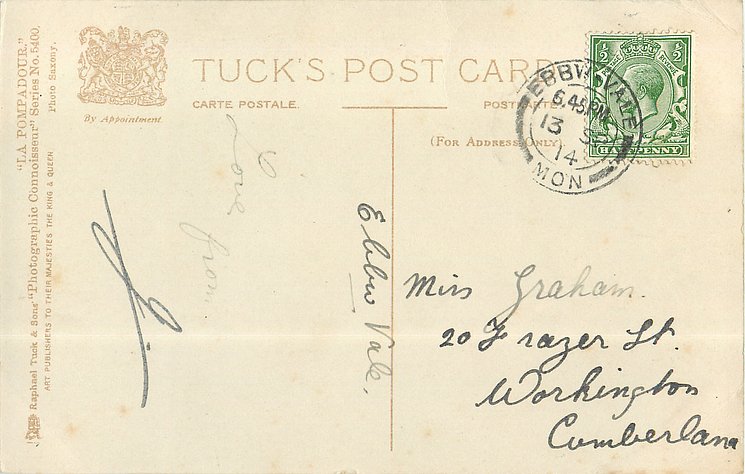 "LA POMPADOUR."
Raphael Tuck & Sons' "Photographic Connoisseur" Series No. 5400.
ART PUBLISHERS TO THEIR MAJESTIES THE KING & QUEEN
Photo Saxony.
By Appointment
TUCK'S POST CARD
CARTE POSTALE.
(For Address Only)
EBBW VALE
6.45 PM
13 SE
14
MON
½ ½
HALFPENNY
Love
from
Ebbw Vale.
Miss Graham.
20 Frazer St.
Workington
Cumberland